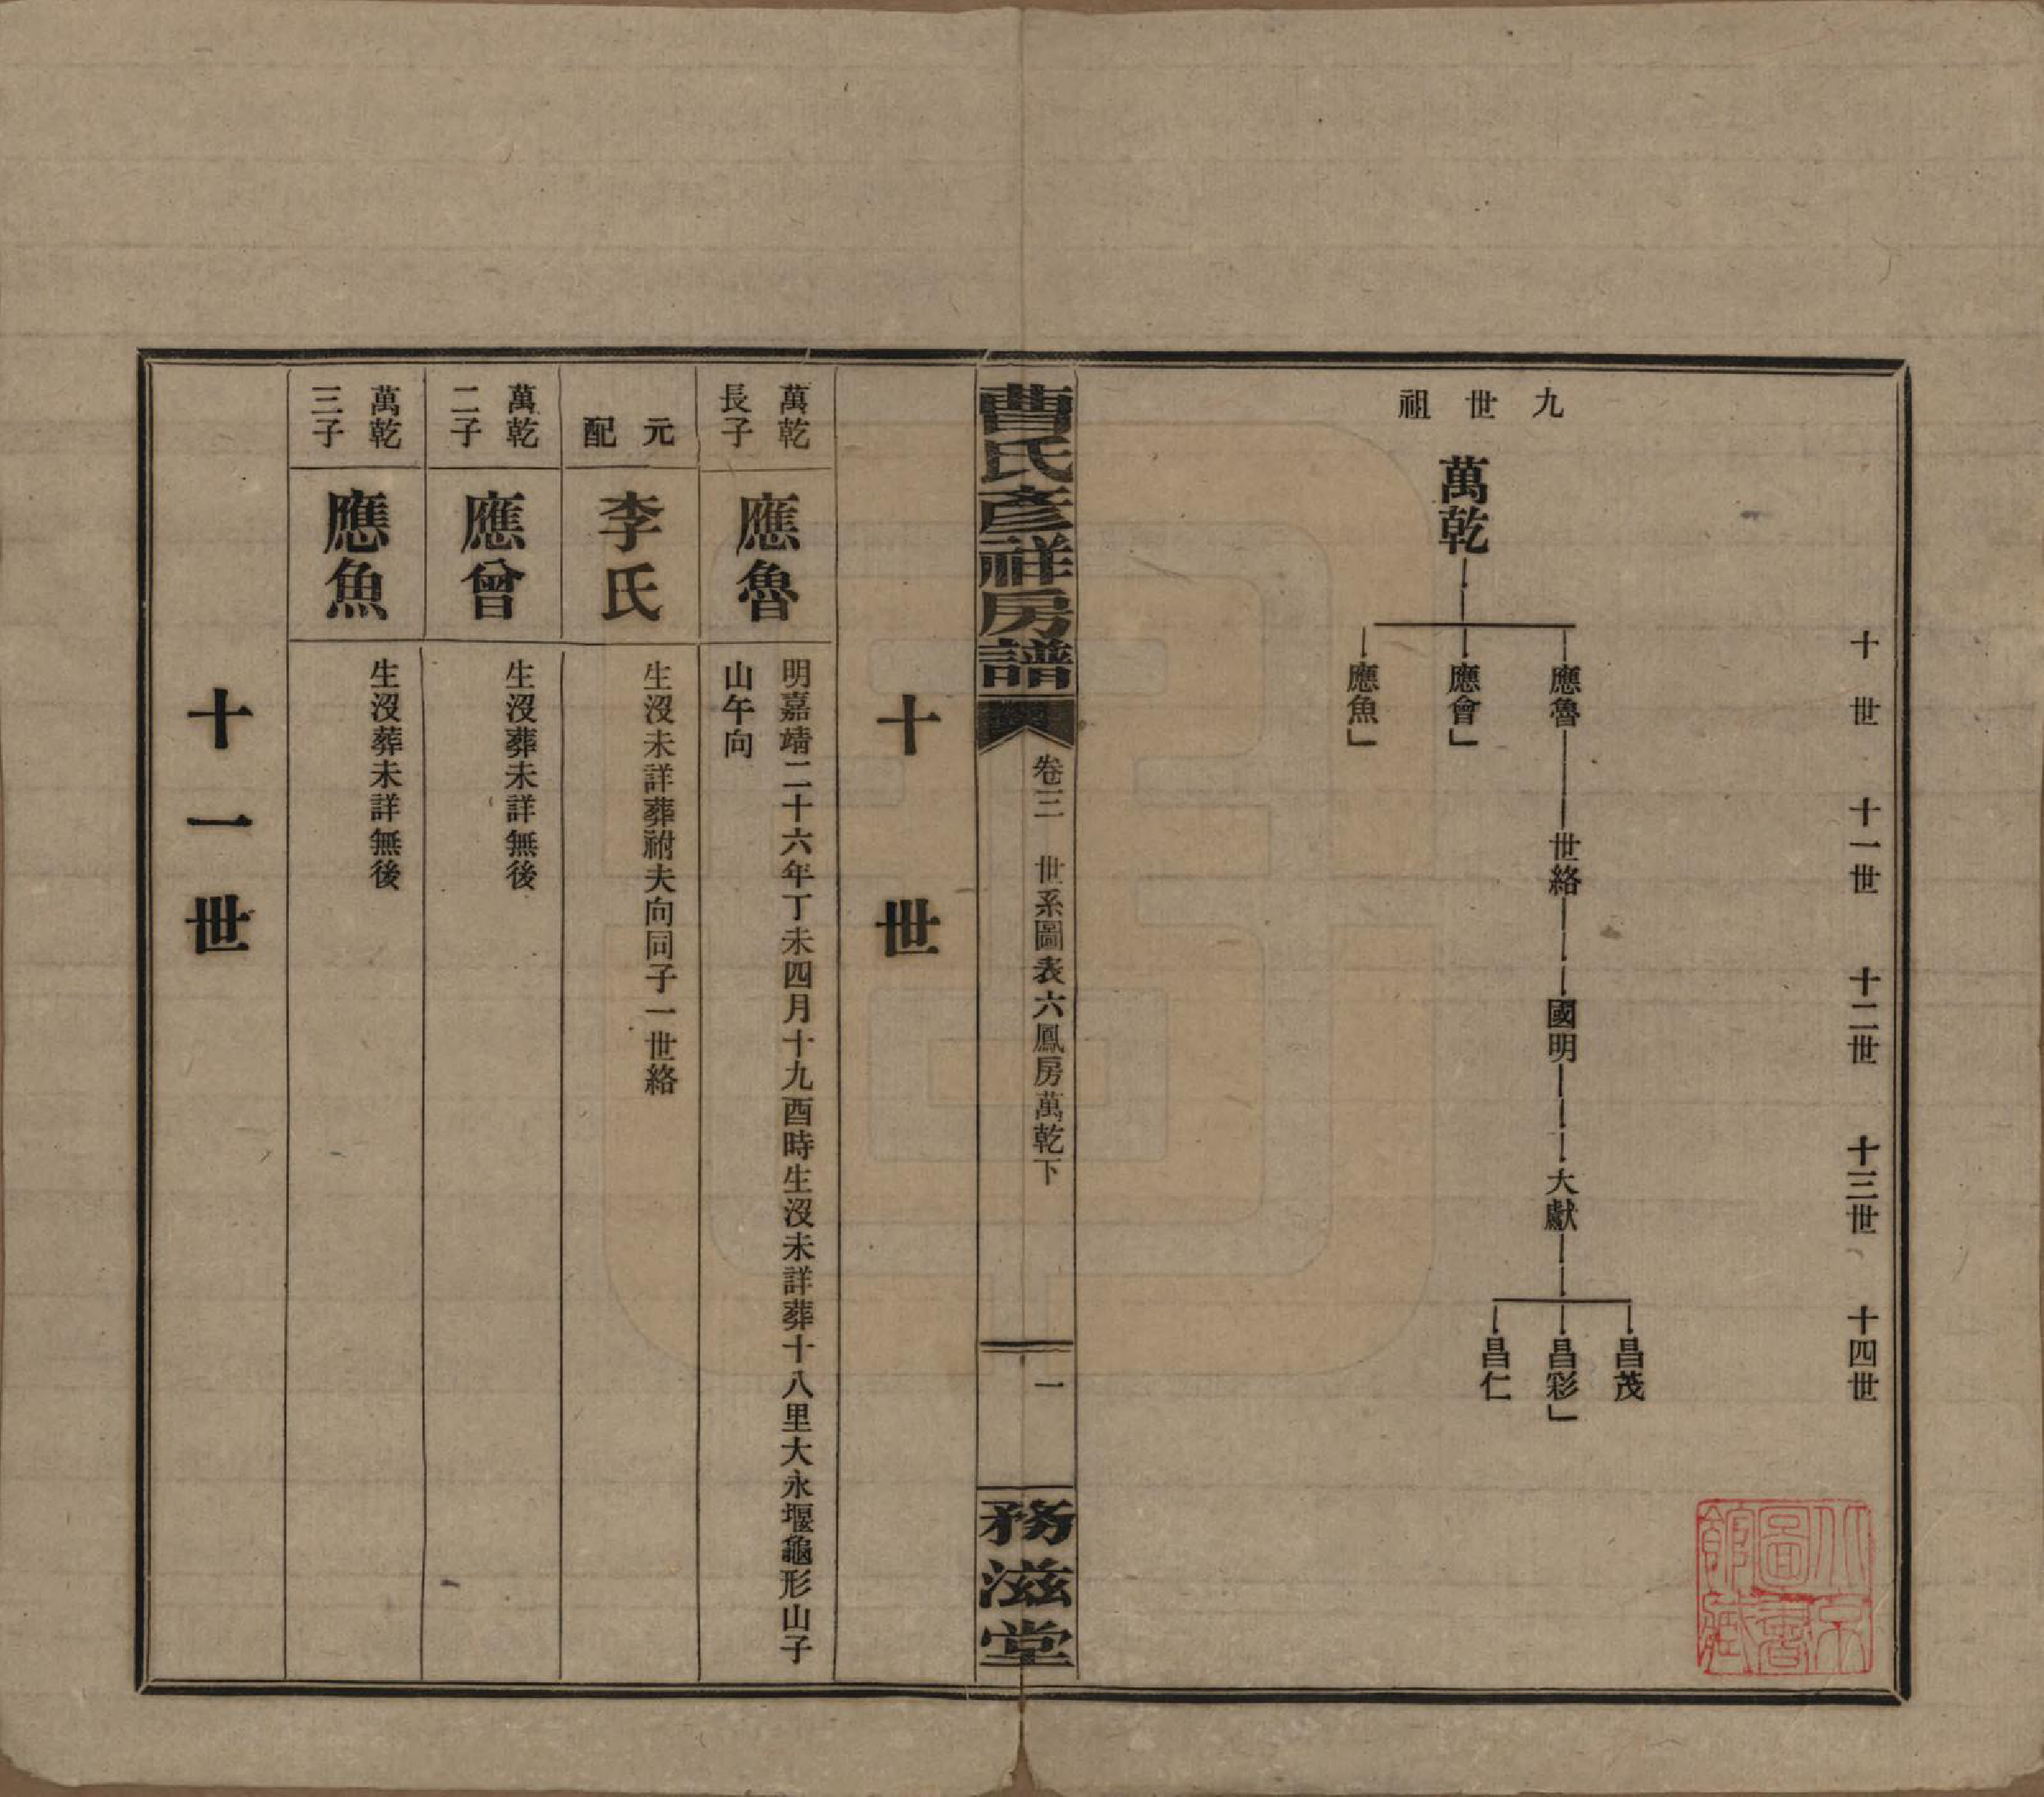 十世
十一世
十二世
十三世
十四世
九世祖
萬乾
應魯
世絡
國明
大獻
昌茂
昌彩」
昌仁
應會」
應魚」
北京
圖書
館藏
曹氏彥祥房譜
卷三 世系圖表六鳳房萬乾下
一
務滋堂
十世
萬乾
長子
應魯
明嘉靖二十六年丁未四月十九酉時生沒未詳葬十八里大永堰龜形山子
山午向
元配
李氏
生沒未詳葬祔夫向同子一世絡
萬乾
二子
應曾
生沒葬未詳無後
萬乾
三子
應魚
生沒葬未詳無後
十一世